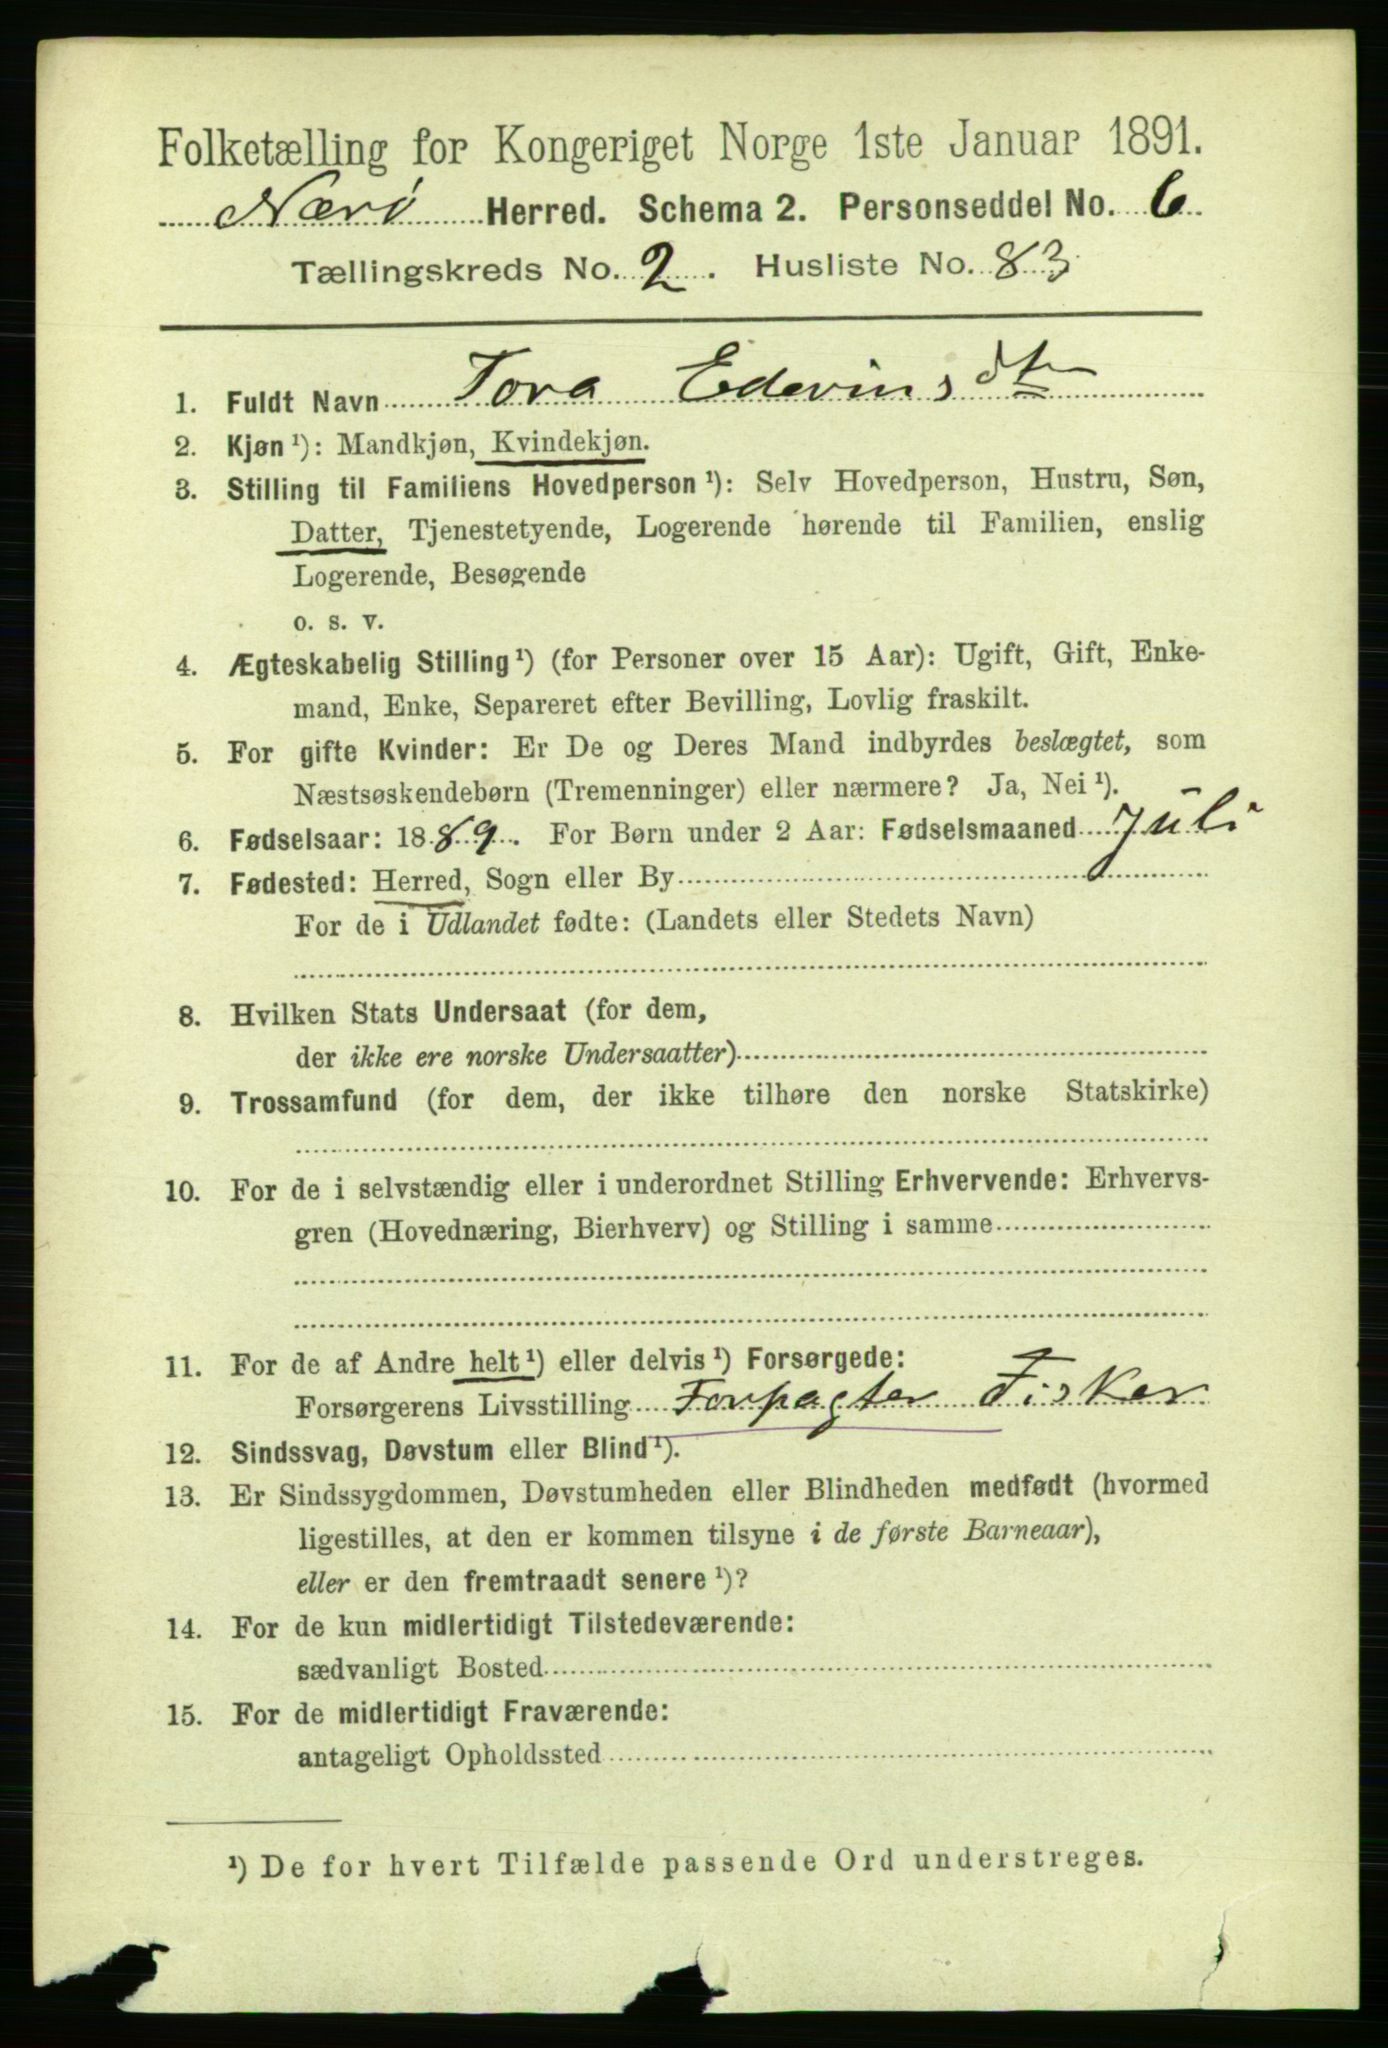 Folketælling for Kongeriget Norge 1ste Januar 1891.
Nærø Herred. Schema 2. Personseddel No. 6
Tællingskreds No. 2. Husliste No. 83
1. Fuldt Navn Tora Edevins dtr
2. Kjøn¹): Mandkjøn, Kvindekjøn.
3. Stilling til Familiens Hovedperson¹): Selv Hovedperson, Hustru, Søn,
Datter, Tjenestetyende, Logerende hørende til Familien, enslig
Logerende, Besøgende
o. s. v.
4. Ægteskabelig Stilling¹) (for Personer over 15 Aar): Ugift, Gift, Enke-
mand, Enke, Separeret efter Bevilling, Lovlig fraskilt.
5. For gifte Kvinder: Er De og Deres Mand indbyrdes beslægtet, som
Næstsøskendebørn (Tremenninger) eller nærmere? Ja, Nei¹).
6. Fødselsaar: 1889. For Børn under 2 Aar: Fødselsmaaned Juli
7. Fødested: Herred, Sogn eller By
For de i Udlandet fødte: (Landets eller Stedets Navn)
8. Hvilken Stats Undersaat (for dem,
der ikke ere norske Undersaatter)
9. Trossamfund (for dem, der ikke tilhøre den norske Statskirke)
10. For de i selvstændig eller i underordnet Stilling Erhvervende: Erhvervs-
gren (Hovednæring, Bierhverv) og Stilling i samme
11. For de af Andre helt¹) eller delvis¹) Forsørgede:
Forsørgerens Livsstilling Forpagter Fisker
12. Sindssvag, Døvstum eller Blind¹).
13. Er Sindssygdommen, Døvstumheden eller Blindheden medfødt (hvormed
ligestilles, at den er kommen tilsyne i de første Barneaar),
eller er den fremtraadt senere¹)?
14. For de kun midlertidigt Tilstedeværende:
sædvanligt Bosted
15. For de midlertidigt Fraværende:
antageligt Opholdssted
¹) De for hvert Tilfælde passende Ord understreges.